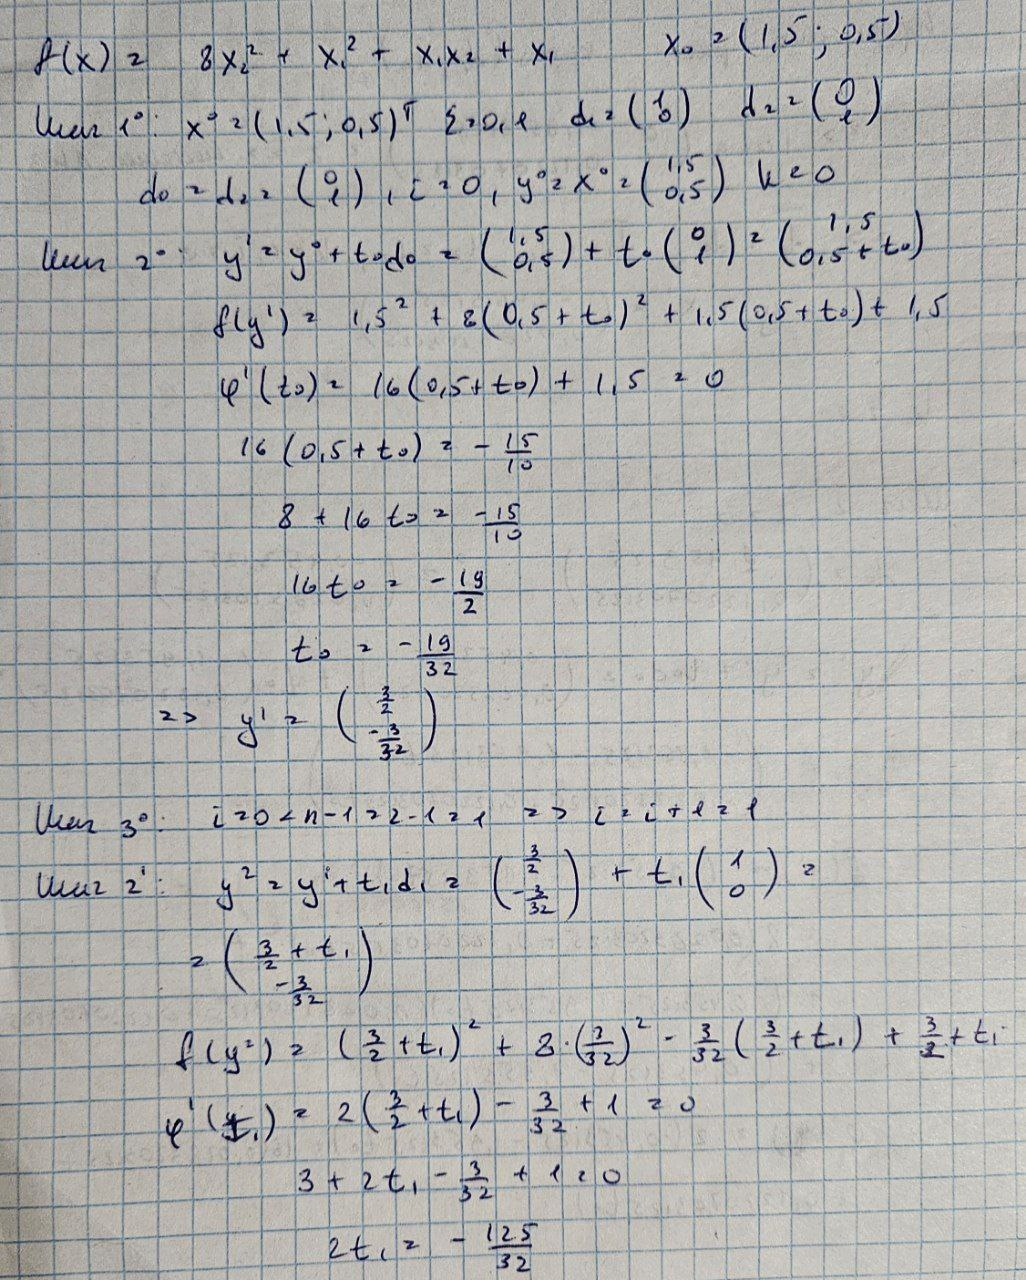 f(x) = 8x₂² + x₁² + x₁x₂ + x₁ x₀ = (1,5; 0,5)
Шаг 1⁰: x⁰ = (1,5; 0,5)ᵀ ε=0,1 d₁ = (1 0) d₂ = (0 1)
d₀ = d₂ = (0 1), i = 0, y⁰ = x⁰ = (1,5 0,5) k = 0
Шаг 2⁰: y¹ = y⁰ + t₀d₀ = (1,5 0,5) + t₀ (0 1) = (1,5 0,5 + t₀)
f(y¹) = 1,5² + 8(0,5 + t₀)² + 1,5(0,5 + t₀) + 1,5
φ'(t₀) = 16(0,5 + t₀) + 1,5 = 0
16(0,5 + t₀) = - 15/10
8 + 16t₀ = - 15/10
16t₀ = - 19/2
t₀ = - 19/32
=> y¹ = (3/2 -3/32)
Шаг 3⁰: i=0 < n-1 = 2-1 = 1 => i = i + 1 = 1
Шаг 2¹: y² = y¹ + t₁d₁ = (3/2 -3/32) + t₁ (1 0) =
= (3/2 + t₁ -3/32)
f(y²) = (3/2 + t₁)² + 8·(3/32)² - 3/32 (3/2 + t₁) + 3/2 + t₁
φ'(t₁) = 2(3/2 + t₁) - 3/32 + 1 = 0
3 + 2t₁ - 3/32 + 1 = 0
2t₁ = - 125/32